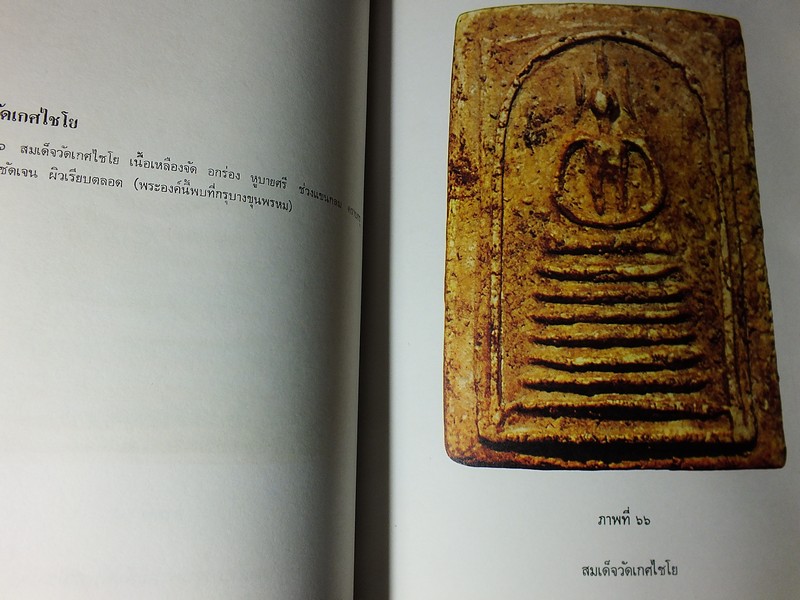 วัดเกศไชโย
๖ สมเด็จวัดเกศไชโย เนื้อเหลืองจัด อกร่อง หูบายศรี ช่วงแขนกลม
ชัดเจน ผิวเรียบตลอด (พระองค์นี้พบที่กรุบางขุนพรหม)
ภาพที่ ๖๖
สมเด็จวัดเกศไชโย